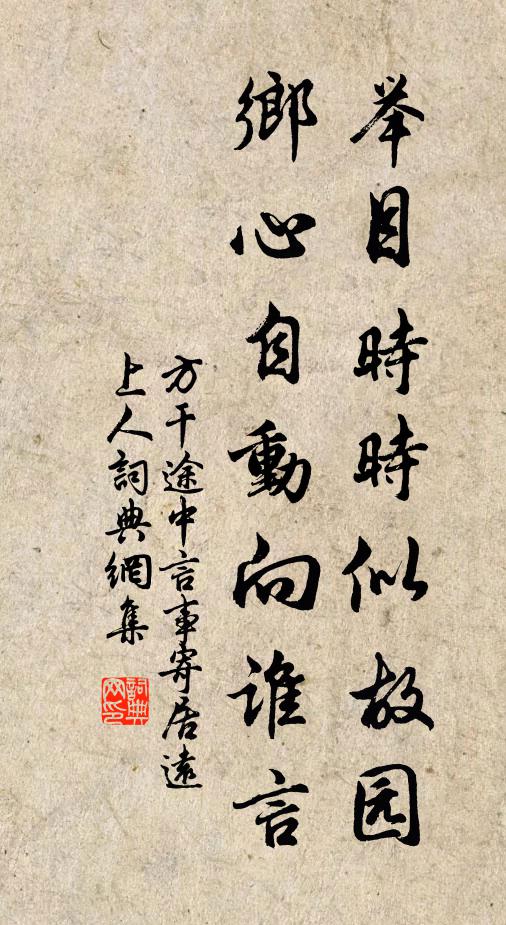 举目時時似故园
鄉心自動向誰言
方干途中言事寄居遠
上人詞典網集
詞典网印